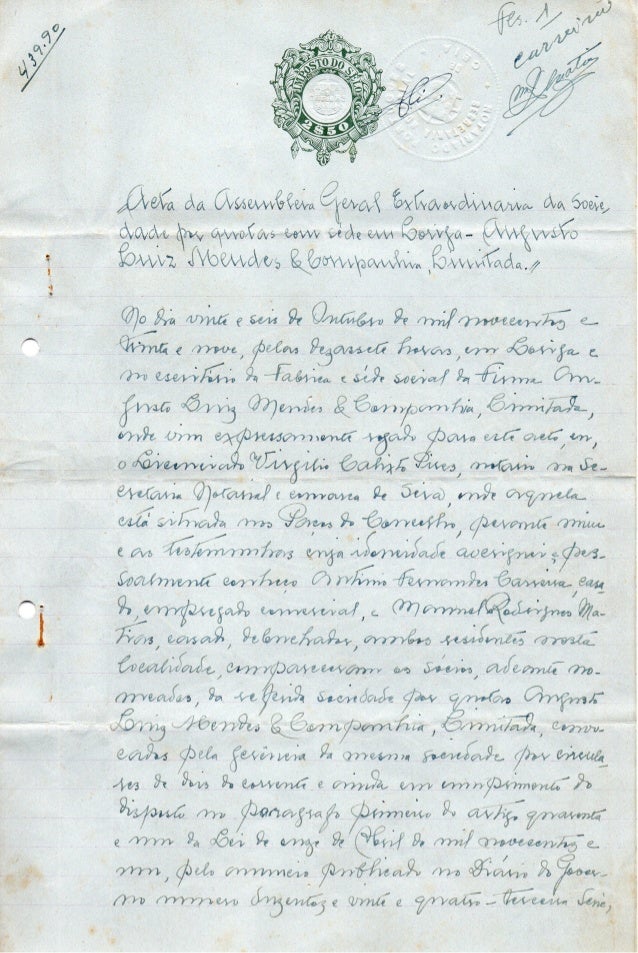 439.90
Fls. 1
Carreira
IMPOSTO DO SELO
2$50
Acta da Assembleia Geral Extraordinaria da Socie,
dade por quotas com séde em Loriga - Augusto
Luiz Mendes & Companhia, Limitada.//
No dia vinte e seis de Outubro de mil novecentos e
trinta e nove, pelas dezassete horas, em Loriga e
no escritório da Fabrica e séde social da Firma Au-
gusto Luiz Mendes & Companhia, Limitada,
onde vim expressamente rogado para este acto, eu,
o Licenciado Virgilio Calixto Pires, notario na Se-
cretaria Notarial e comarca de Seia, onde aquela
está situada nos Paços do Concelho, perante mim
e as testemunhas cuja idoneidade averiguei e pes-
soalmente conheço Antonio Fernandes Carreira, casa
do, empregado comercial, e Manuel Rodrigues Ma-
tias, casado, debuchador, ambos residentes nesta
localidade, compareceram os sócios, adeante no-
meados, da referida sociedade por quotas Augusto
Luiz Mendes & Companhia, Limitada, convo-
cados pela gerência da mesma sociedade por circula-
res de dois do corrente e ainda em cumprimento do
disposto no paragrafo primeiro do artigo quarenta
e um da Lei de onze de Abril de mil novecentos e
um, pelo anuncio publicado no Diário do Gover-
no numero duzentos e vinte e quatro - terceira Serie,